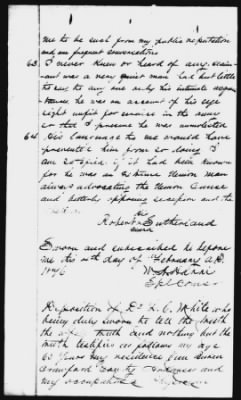 me to be such from my public reputation
and our frequent conversations
63. I never knew or heard of any. claim-
ant was a very quiet man had but little
to say to any one only his intimate acquain
tance he was on account of his age
not unfit for service in the army
so that I presume he was unmolested
64. His language to me would have
prevented him from so doing I
am satisfied if it had been known
for he was an extreme Union man
always advocating the Union Cause
and bitterly opposing secession and the
his
Robert Sutherland
mark
Sworn and subscribed to before
me this 10th day of February A.D.
1876
Spl Comr
Deposition of Dr. L. C. White who
being duly sworn to tell the truth
the whole truth and nothing but the
truth testifies as follows my age
63 years my residence Van Buren
Crawford County Arkansas and
my occupation